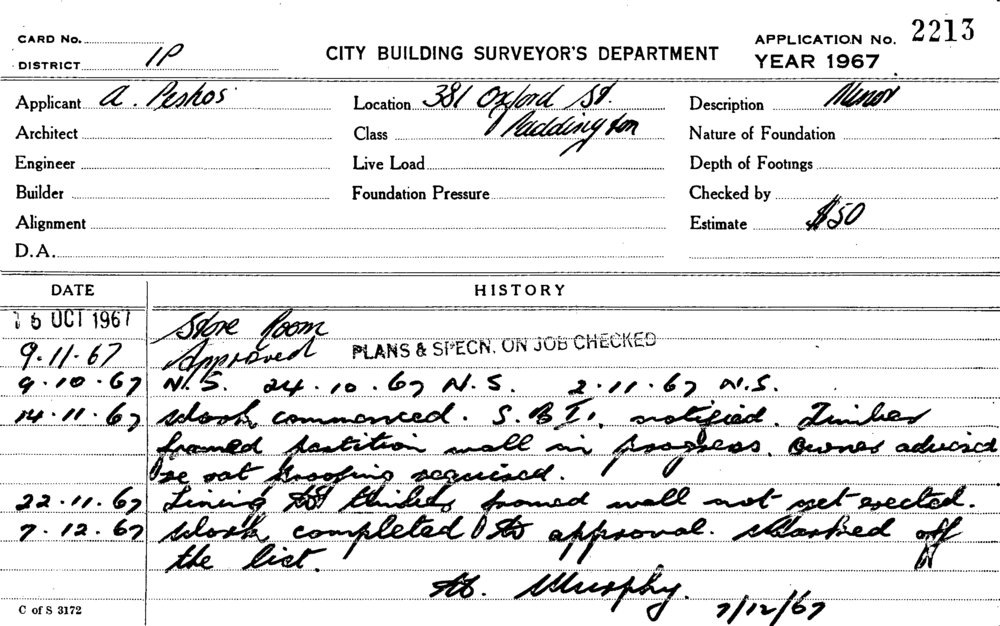 CARD No.
DISTRICT 1P
CITY BUILDING SURVEYOR'S DEPARTMENT
APPLICATION No. 2213
YEAR 1967
Applicant A. Peskos
Location 381 Oxford St.
Description Minor
Architect
Class Paddington
Nature of Foundation
Engineer
Live Load
Depth of Footings
Builder
Foundation Pressure
Checked by
Alignment
Estimate $50
D.A.
DATE HISTORY
16 OCT 1967 Store Room
9.11.67 Approved PLANS & SPECN. ON JOB CHECKED
9.10.67 N.S. 24.10.67 N.S. 2.11.67 N.S.
14.11.67 Work commenced. S.B.I. notified. Timber
framed partition wall in progress. Owner advised
re rat proofing required.
22.11.67 Lining to timber framed wall not yet erected.
7.12.67 Work completed to approval. Marked off
the list.
Murphy.
7/12/67
C of S 3172